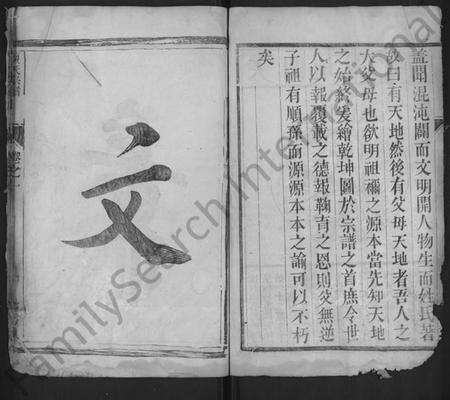 蓋聞混沌闢而文明開人物生而姓氏著
故曰有天地然後有父母天地者吾人之
大父母也欲明祖禰之源本當先知天地
之始終爰繪乾坤圖於宗譜之首庶令世
人以報覆載之德報鞠育之恩則父無逆
子祖有順孫而源源本本之論可以不朽
矣
文
FamilySearch International